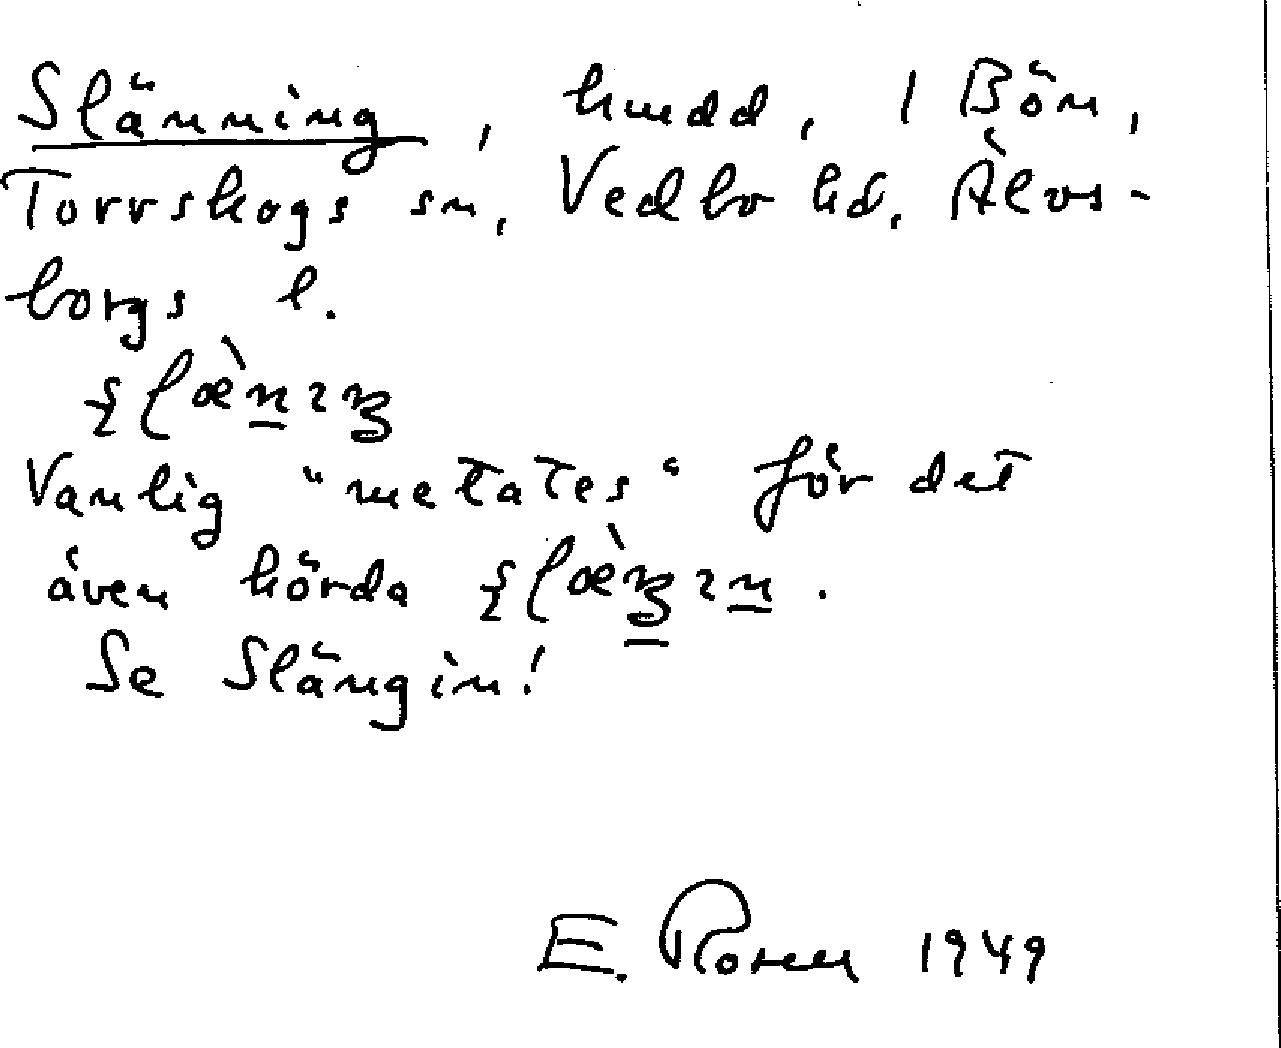 Slänning, hmdd, 1 Bön,
Torrskogs sn, Vedbo hd, Älvs-
borgs l.
Vanlig "metates" för det
även hörda .
Se Slängin!
E. 1949